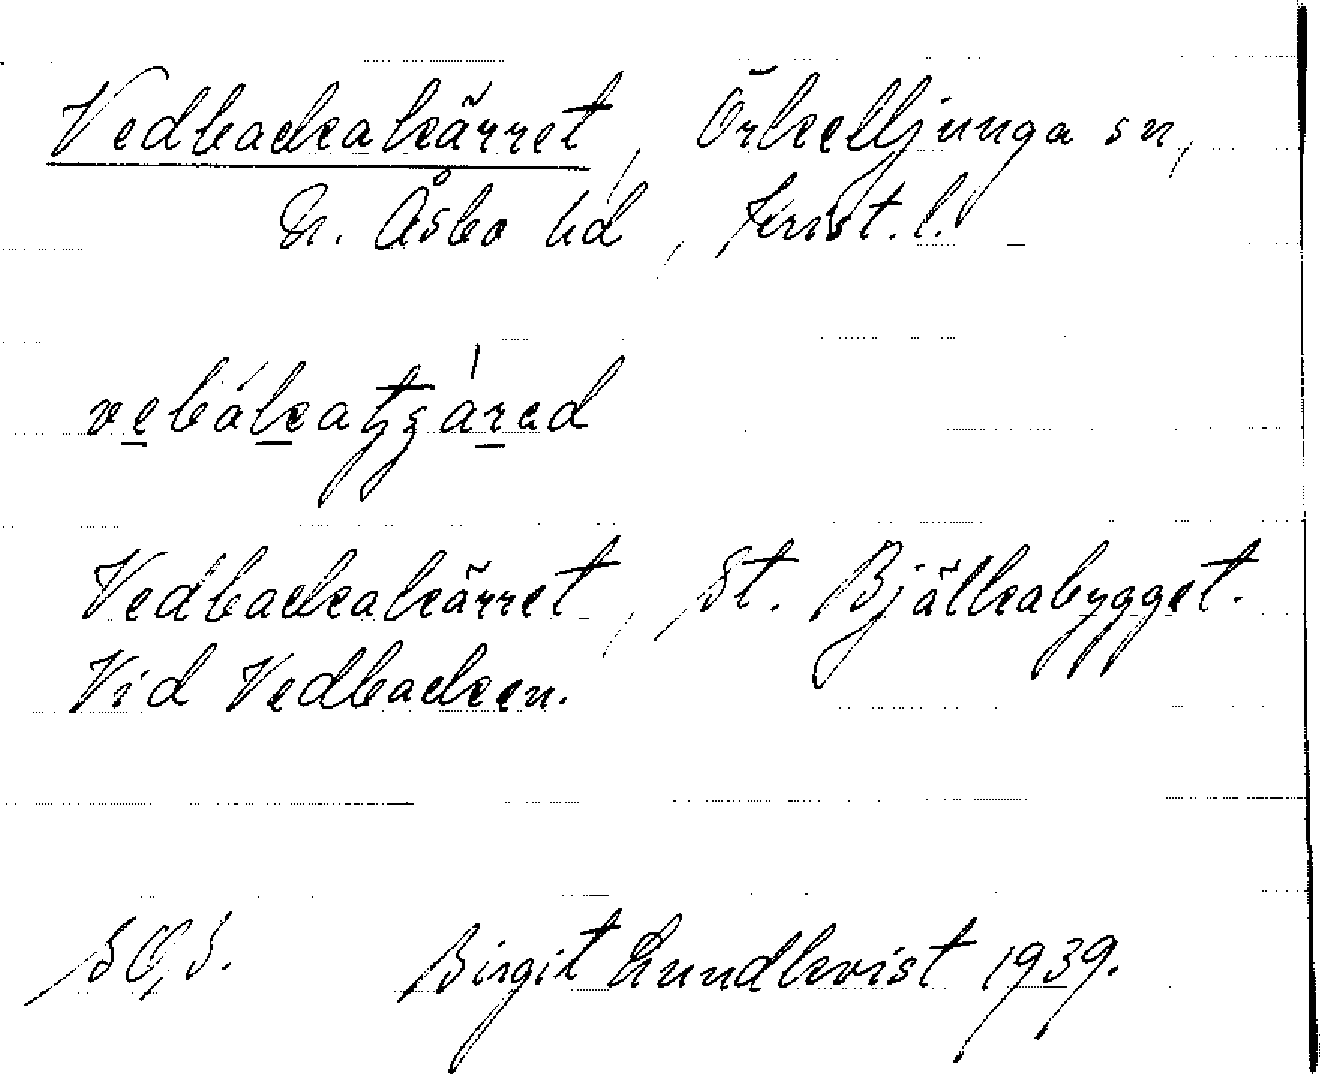 Vedbackakärret, Örkelljunga sn,
N. Åsbo hd, Krist. l.
Vedbackakärret, St. Bjälkabygget.
Vid Vedbacken.
Birgit Lundkvist 1939.